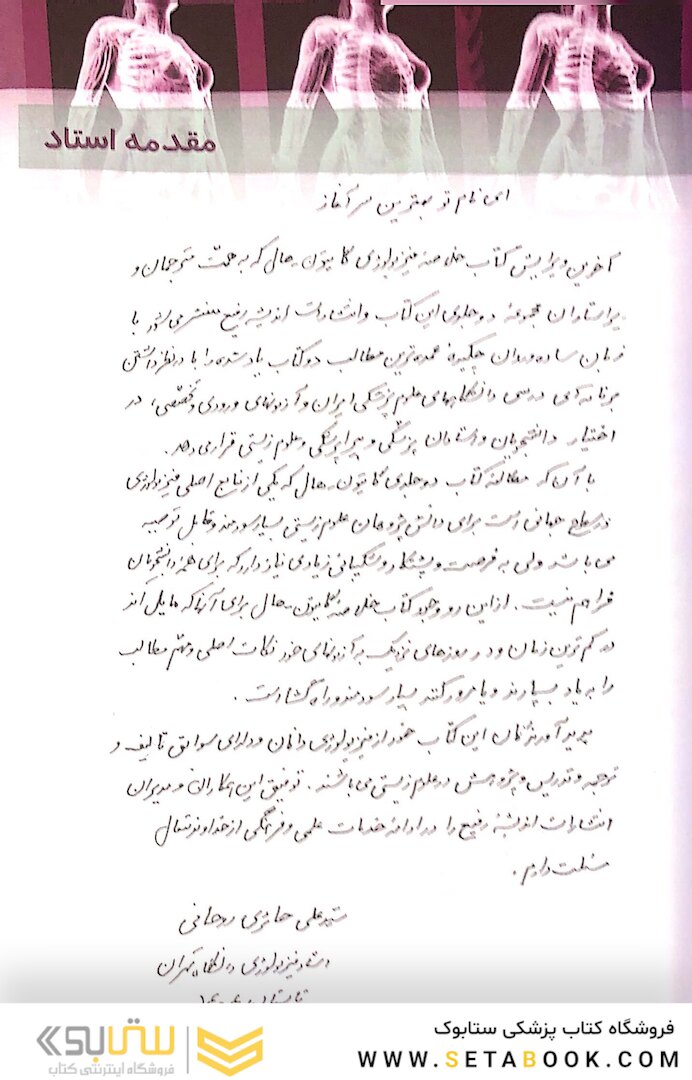 مقدمه استاد
ای نام تو بهترین سرآغاز
آخرین ویرایش کتاب خلاصهٔ فیزیولوژی گایتون-هال که به همت مترجمان و
ویراستاران مجموعهٔ دو جلدی این کتاب و انتشارات اندیشه رفیع منتشر می شود با
زبان ساده و روان چکیدهٔ عمده ترین مطالب دو کتاب یاد شده را با در نظر داشتن
برنامه های درسی دانشگاههای علوم پزشکی ایران و آزمونهای ورودی و تخصصی، در
اختیار دانشجویان و استادان پزشکی و پیراپزشکی و علوم زیستی قرار می دهد.
با آن که مطالعهٔ کتاب دو جلدی گایتون-هال که یکی از منابع اصلی فیزیولوژی
در سطح جهانی است برای دانش پژوهان علوم زیستی بسیار سودمند و قابل توصیه
می باشد ولی به فرصت و پشتکار و شکیبائی زیادی نیاز دارد که برای همه دانشجویان
فراهم نیست. از این رو وجود کتاب خلاصه گایتون-هال برای آنها که مایل اند
در کم ترین زمان و در روزهای نزدیک به آزمونهای خود نکات اصلی و مهم مطالب
را به یاد بسپارند و یا مرور کنند بسیار سودمند و راه گشا است.
پدید آورندگان این کتاب خود از فیزیولوژی دانان و دارای سوابق تألیف و
ترجمه و تدریس و پژوهش در علوم زیستی می باشند. توفیق این همکاران و مدیران
انتشارات اندیشهٔ رفیع را در ادامه خدمات علمی و فرهنگی از خداوند متعال
مسئلت دارم.
سیدعلی حائری روحانی
استاد فیزیولوژی دانشگاه تهران
تابستان
فروشگاه کتاب پزشکی ستابوک
WWW.SETABOOK.COM
ستابوک
فروشگاه اینترنتی کتاب